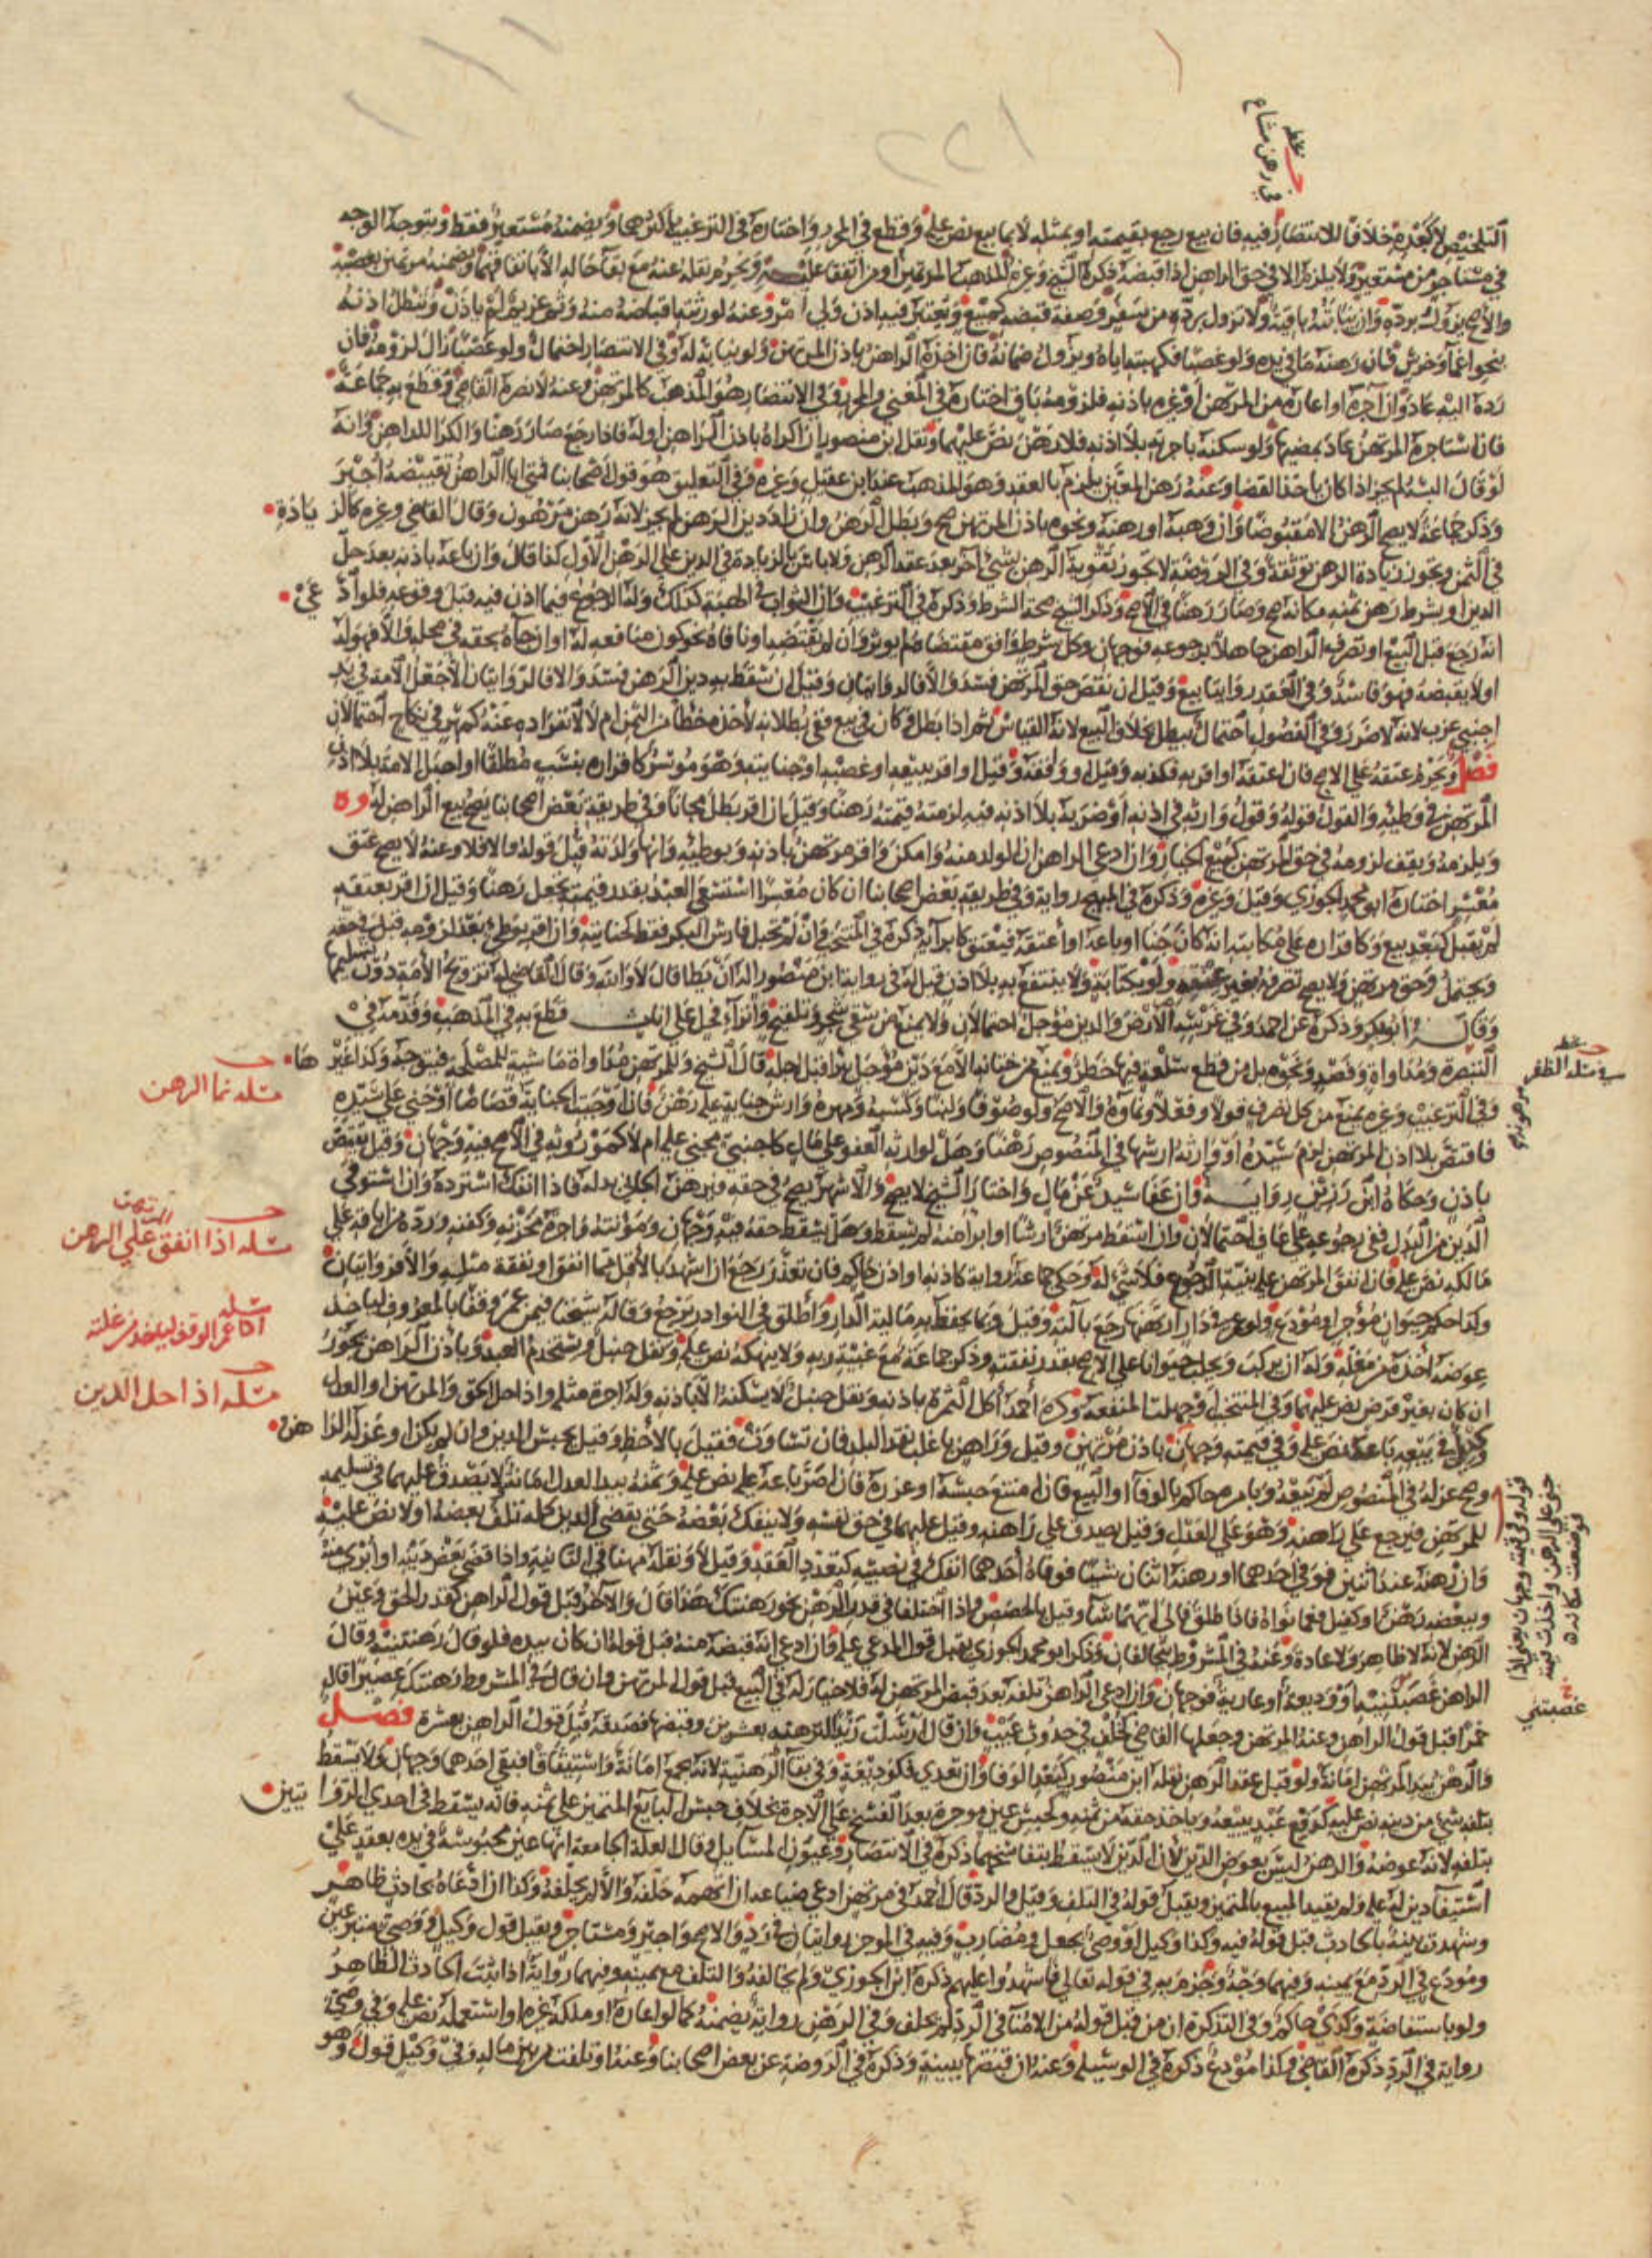 في رهن مشاع
التلخيص لا كغيره خلافا للانتصار فيه فان بيع رجع بقيمته او بمثله لا بما بيع نص عليه وقطع في المحرر واختاره في الترغيب باكثرهما ويضمنه مستعير فقط ويتوجه الوجه
في مستاجر من مستعير ولا يلزم الا في حق الراهن اذا قبضه ذكره الشيخ وغيره المذهب المرتهن او من اتفقا عليه ويحرم نقله عنه مع بقا حاله الا باتفاقهما ويضمنه مرتهن بغصبه
والاصح يزول برده وان نيابته باقية ولا تزول برده من سفر وصفة قبضه كمبيع ويعتبر فيه اذن ولي امر وعنه لورثته اقباضه منه وثم غريم لم ياذن ويبطل اذنه
بنحو اغما وخرس فان رهنه ما في يده ولو غصبا فكهبته اياه ويزول ضمانه فان اخذه الراهن باذن المرتهن ولو نيابة له وفي الانتصار احتمال ولو غصبا زال لزومه فان
رده اليه عاد وان آجره او اعاره من المرتهن او غيره باذنه فلزومه باق اختاره في المغني والمحرر وفي الانتصار هو المذهب كالمرتهن وعنه لا نصره القاضي وقطع به جماعة
فان استاجره المرتهن عاد بمضيها ولو سكنه باجرته بلا اذنه فلا رهن نص عليهما ونقل ابن منصور ان اكراه باذن الراهن او له فاذا رجع صار رهنا والكرا للراهن وانه
لو قال البتة لم يجز اذا كان ياخذ القضا وعنه رهن المعين يلزم بالعقد وهو المذهب عند ابن عقيل وغيره وفي التعليق هو قول اصحابنا فمتى ابا الراهن تقبيضه اجبر
وذكر جماعة لا يصح الرهن الا مقبوضا وان وهبه او رهنه ونحوه باذن المرتهن صح وبطل الرهن وان زاد دين الرهن لم يجز لانه رهن مرهون وقال القاضي وغيره كالزيادة
في الثمن ويجوز زيادة الرهن توثقة وفي الروضة لا يجوز تقوية الرهن بشي آخر بعد عقد الرهن ولا باس بالزيادة في الدين على الرهن الاول كذا قال وان باعه باذنه بعد حل
الدين او بشرط رهن ثمنه مكانه صح وصار رهنا في الاصح وذكر الشيخ صحة الشرط وذكره في الترغيب وان الثواب في الهبة كذلك وله الرجوع فيما اذن فيه قبل وقوعه فلو ادعى
انه رجع قبل البيع او تصرف الراهن جاهلا برجوعه فوجهان وكل شرط وافق مقتضاه لم يوثر وان لم يقتضه او نافاه نحو كون منافعه له او ان جاه بحقه في محله والا فهو له
او لا يقبضه فهو فاسد وفي العقد روايتا بيع وقيل ان نقص حق المرتهن فسد والا فالروايتان وقيل ان سقط به دين الرهن فسد والا فالروايتان الا جعل الامة في يد
اجنبي عزب لانه لا ضرر وفي الفصول احتمال يبطل بخلاف البيع لانه القياس ثم اذا بطل وكان في بيع ففي بطلانه لاخذه حظا من الثمن ام لا لانفراده عنه كمهر في نكاح احتمالان
فصل ويحرم عتقه على الاصح فان اعتقه او اقر به فكذبه وقيل او وقفه وقيل او اقر ببيعه او غصبه او جنايته وهو موسر كاقراره بنسب مطلقا او احبل الامة بلا اذن
المرتهن في وطئه والقول قوله وقول وارثه في اذنه او ضربه بلا اذنه فيه لزمته قيمته رهنا وقيل ان اقر بطل مجانا وفي طريقة بعض اصحابنا يصح بيع الراهن له
ويلزمه ويقف لزومه في حق المرتهن كبيع الخيار وان ادعى الراهن ان الولد منه وامكن واقر مرتهن باذنه وبوطئه وانها ولدته قبل قوله والا فلا وعنه لا يصح عتق
معسر اختاره ابو محمد الجوزي وقيل وغيره وذكره في المبهج رواية وفي طريقة بعض اصحابنا ان كان معسرا استسعى العبد بقدر قيمته تجعل رهنا وقيل ان اقر بعتقه
لم يقبل كبعد بيع وكاقراره على مكاتبه انه كان جنا او باعه او اعتقه فيعتق كابرائه ذكره في المنتخب وان لم تحبل فارش البكر فقط كجنايته وان اقر بوطئ بعد لزومه قبل في حقه
ويحتمل وحق مرتهن ولا يصح تصرفه بغير عتقه ولو بكتابة ولا ينتفع به بلا اذن قيل له في رواية ابن منصور اله ان يطا قال لا والله وقال القاضي له تزويج الامة دون تسليمها
وقاله ابو بكر وذكره عن احمد وفي غرسه الارض والدين مؤجل احتمالان ولا يمنع من سقي شجر وتلقيح وانزاء فحل على اناث قطع به في المذهب وقدمه في
التبصرة ومداواة وفصد ونحوه بل من قطع سلعة فيها خطر ويمنع من ختانه الا مع دين مؤجل يبرا قبل اجله قال الشيخ وللمرتهن مداواة ماشية للمصلحة فيتوجه وكذا غيرها
وفي الترغيب وغيره يمنع من كل تصرف قولا وفعلا ونماوه والاصح ولو صوفا ولبنا وكسبه ومهره وارش جناية عليه رهن فان اوجبت الجناية قصاصا او جنى على سيده
فاقتص بلا اذن المرتهن لزم سيده او وارثه ارشها في المنصوص رهنا وهل لوارثه العفو على مال كاجنبي مجني عليه ام لا كموروثه في الاصح فيه وجهان وقيل يقتص
باذن وحكاه ابن رزين رواية وان عفا سيده عن مال واختار الشيخ لا يصح والاشهر يصح في حقه فيرهن الجاني بدله فاذا انفك استرده وان استوفي
الدين من البدل ففي رجوعه على عاف احتمالان وان اسقط مرتهن ارشا او ابرا منه لم يسقط وهل يسقط حقه فيه وجهان ومؤنته واجرة مخزنه وكفنه ورده من اباقه على
مالكه نص عليه فان انفق المرتهن عليه بنية الرجوع فلا شي له وحكى جماعة رواية كاذنه او اذن حاكم فان تعذر رجع ان اشهد بالاقل مما انفق او نفقة مثله والا فروايتان
وكذا حكم حيوان مؤجر او مودع ولو عمر في دار ارتهنها رجع بآلته وقيل وبما يحفظ به مالية الدار واطلق في النوادر يرجع وقاله شيخنا فيمن عمر وقفا بالمعروف لياخذ
عوضه اخذه من مغله وله ان يركب ويحلب حيوانا على الاصح بقدر نفقته وذكر جماعة مع غيبة ربه ولا ينهكه نص عليه ونقل حنبل ويستخدم العبد وباذن الراهن يجوز
ان كان بغير قرض نص عليهما وفي المنتخب او جهلت المنفعة وكره احمد اكل الثمرة باذنه ونقل حنبل لا يسكنه الا باذنه وله اجرة مثله واذا حل الحق والمرتهن او العدل
وكيل في بيعه باعه نص عليه وفي قيمته وجهان باذن مرتهن وقيل وراهن باغلب نقد البلد فان تساوت فقيل بالاحظ وقيل بجنس الدين وان لم يكن او عزله الراهن
وصح عزله في المنصوص لم يبعه ويامره حاكم بالوفا او البيع فان امتنع حبسه او عزره فان اصر باعه عليه نص عليه وثمنه بيد العدل امانة ولا يصدق عليهما في تسليمه
للمرتهن فيرجع على راهنه وهو على العدل وقيل يصدق على راهنه وقيل عليهما في حق نفسه ولا ينفك بعضه حتى يقضي الدين كله تلف بعضه او لا نص عليه
وان رهنه عند اثنين فوفى احدهما او رهنه اثنان شيئا فوفاه احدهما انفك في نصيبه كتعدد العقد وقيل لا ونقله مهنا في الثانية واذا قضى بعض دينه او ابرئ منه
وببعضه رهن او كفيل فعما نواه فاذا اطلق فالى ايهما شا وقيل بالحصص واذا اختلفا في قدر الرهن نحو رهنتك هذا قال والآخر قبل قول الراهن كقدر الحق وعين
الرهن لانه لا ظاهر ولا عادة وعنه في المشروط يتحالفان وذكر ابو محمد الجوزي يقبل قول المدعي عليه فان ادعى انه قبضه منه قبل قوله ان كان بيده فلو قال رهنتنيه وقال
الراهن غصبتنيه او وديعة او عارية فوجهان وان ادعى الراهن تلفه بعد قبض المرتهن له فلا خيار له في البيع قبل قول المرتهن وان قال في المشروط رهنتك عصيرا قال
خمرا قبل قول الراهن وعنه المرتهن وجعلها القاضي كخلف في حدوث عيب وان قال ارسلت زيدا لترهنه بعشرين وقبضها فصدقه قبل قول الراهن بعشرة فصل
والرهن بيد المرتهن امانة ولو قبل عقد الرهن نقله ابن منصور كبعد الوفا وان تعدى فكوديعة وفي بقا الرهنية لانه يجمع امانة واستيثاقا فبقي احدهما وجهان ولا يسقط
بتلفه شي من دينه نص عليه كدفع عبد يبيعه وياخذ حقه من ثمنه وكحبس عين موجرة بعد الفسخ على الاجرة بخلاف حبس البايع المتميز على ثمنه فانه يسقط في احدى الروايتين
بتلفه لانه عوضه والرهن ليس بعوض الدين لان الدين لا يسقط بتفاسخهما ذكره في الانتصار وعيون المسايل وقال العلة الجامعة انها عين محبوسة في يده بعقد على
استيفا دين له عليه ولم يقيد المبيع بالمتميز ويقبل قوله في التلف وقيل والرد قال احمد في مرتهن ادعى ضياعه ان اتهمه حلفه والا لم يحلفه وكذا ان ادعاه بحادث ظاهر
وشهدت بينة بالحادث قبل قوله فيه وكذا وكيل او وصي بجعل ومضارب وفيه في الموجز روايتان في رد والاصح واجير ومستاجر ويقبل قول وكيل ووصي متبرعين
ومودع في الرد مع يمينه وفيهما وجه وجزم به في قوله تعالى فاشهدوا عليهم ذكره ابن الجوزي ولم يخالفه والتلف مع يمينه وفيهما رواية اذا ثبت الحادث الظاهر
ولو باستفاضة وكذي حاكم وفي التذكرة ان من قبل قوله من الامنا في الرد لم يحلف وفي الرهن رواية يضمنه كما لو اعاره او ملكه غيره او استعمله نص عليه وفي وصي
رواية في الرد ذكره القاضي وكذا مودع ذكره في الوسيلة وعنه ان قبضها ببينة وذكره في الروضة عن بعض اصحابنا وعنه او تلفت من بين ماله وفي وكيل قول وهو
مسئلة نما الرهن
في مسئلة الظفر
مسئلة اذا انفق على الرهن
مسئلة
اذا عمر الوقف لياخذ من غلته
مسئلة اذا حل الدين
غصبتني